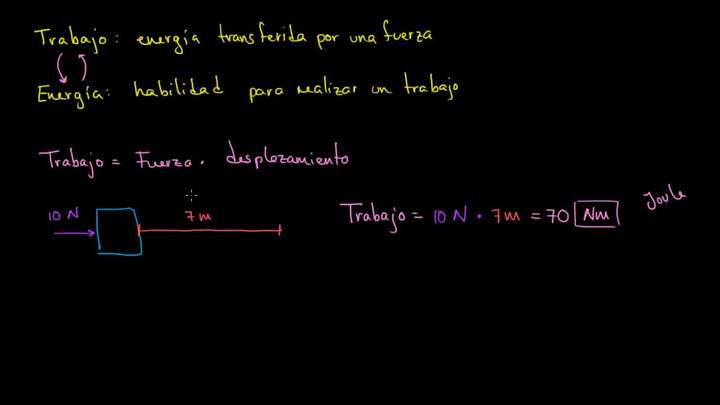 Trabajo: energía transferida por una fuerza
Energía: habilidad para realizar un trabajo
Trabajo = Fuerza · desplazamiento
10 N
7 m
Trabajo = 10 N · 7m = 70 Nm
Joule